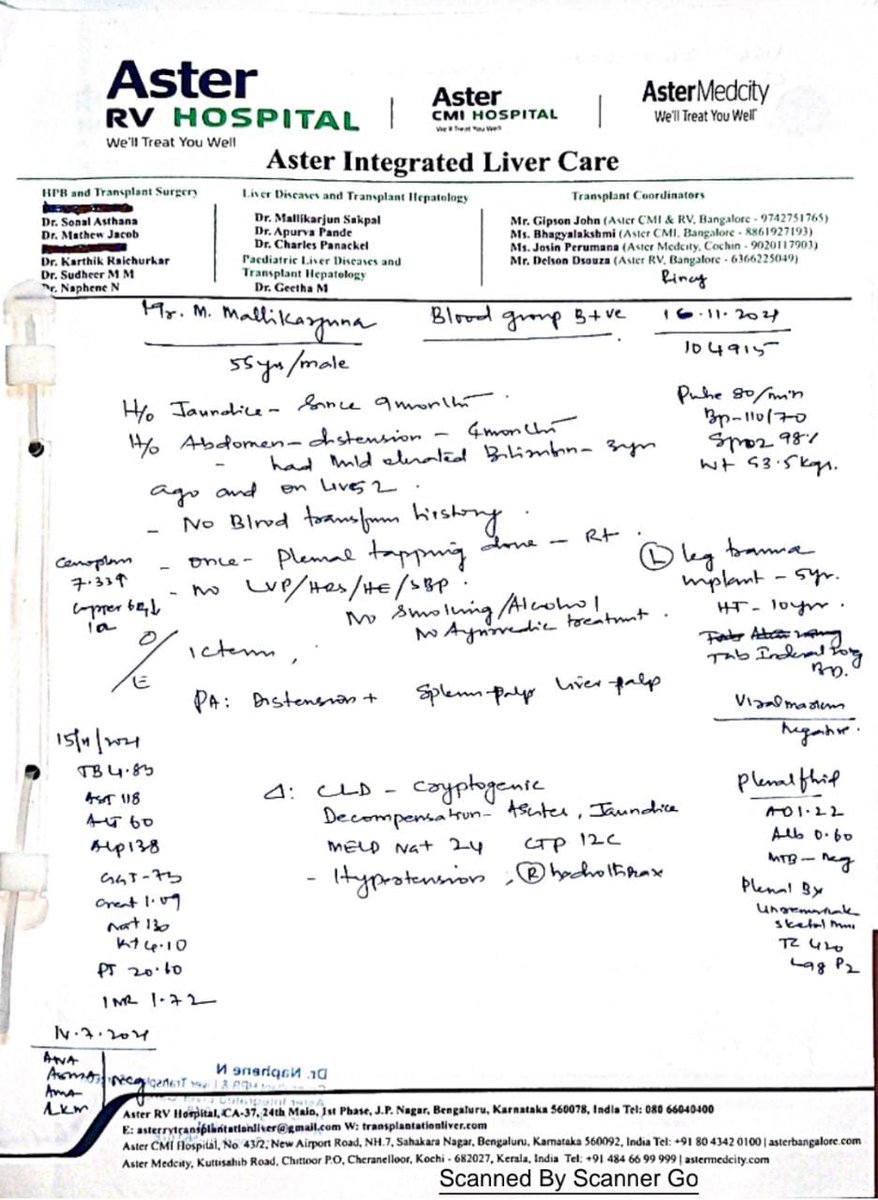 Aster
RV HOSPITAL
We'll Treat You Well
Aster
CMI HOSPITAL
We'll Treat You Well
AsterMedcity
We'll Treat You Well
Aster Integrated Liver Care
HPB and Transplant Surgery
Dr. Sonal Asthana
Dr. Mathew Jacob
Dr. Karthik Raichurkar
Dr. Sudheer M M
Dr. Naphene N
Liver Diseases and Transplant Hepatology
Dr. Mallikarjun Sakpal
Dr. Apurva Pande
Dr. Charles Panackel
Paediatric Liver Diseases and
Transplant Hepatology
Dr. Geetha M
Transplant Coordinators
Mr. Gipson John (Aster CMI & RV, Bangalore - 9742751765)
Ms. Bhagyalakshmi (Aster CMI, Bangalore - 8861927193)
Ms. Josin Perumana (Aster Medcity, Cochin - 9020117903)
Mr. Delson Dsouza (Aster RV, Bangalore - 6366225049)
Rincy
Mr. M. Mallikarjuna Blood group B+ve 16.11.2021
104915
55yrs/male
H/o Jaundice - Since 9 months.
H/o Abdomen - distension - 4 months
- had mild elevated Bilirubin - 3yrs
ago and on Liv52.
- No Blood transfusn history.
- once - Pleural tapping done - Rt.
- No LVP/HRS/HE/SBP.
No Smoking/Alcohol
No Ayurvedic treatment.
Pulse 80/min
Bp - 110/70
SPO2 98%
Wt 53.5kgs.
7.33↑
Copper
(L) leg trauma
implant - 5yr.
HT - 10yrs.
Tab Inderal
BD.
O/E
Icterus,
PA: Distension + Spleen-palp Liver-palp
Viral markers
Negative.
15/11/2021
TB 4.83
AST 118
ALT 60
ALP 138
GGT - 73
Creat 1.09
Na+ 130
K+ 4.10
PT 20.60
INR 1.72
Δ: CLD - Cryptogenic
Decompensation - Ascites, Jaundice
MELD Na+ 24 CTP 12C
- Hypertension, (R) hydrothorax
Pleural fluid
Alb 0.60
MTB - Neg
Pleural Bx
TC 420
14.7.2021
ANA
ASMA
AMA
LKM
Neg
Dr. Naphene N
Aster RV Hospital, CA-37, 24th Main, 1st Phase, J.P. Nagar, Bengaluru, Karnataka 560078, India Tel: 080 66040400
E: asterrvtransplantationliver@gmail.com W: transplantationliver.com
Aster CMI Hospital, No. 43/2, New Airport Road, NH.7, Sahakara Nagar, Bengaluru, Karnataka 560092, India Tel: +91 80 4342 0100 | asterbangalore.com
Aster Medcity, Kuttisahib Road, Chittoor P.O, Cheranelloor, Kochi - 682027, Kerala, India Tel: +91 484 66 99 999 | astermedcity.com
Scanned By Scanner Go